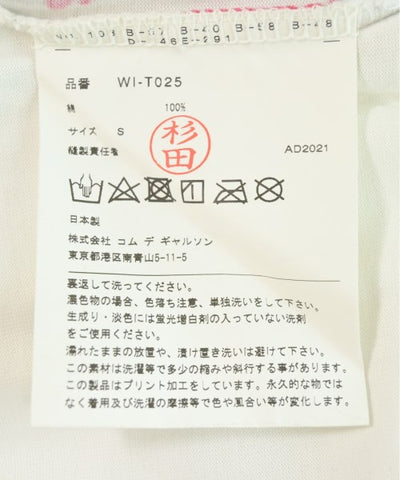 品番 WI-T025
綿 100%
サイズ S
杉田
縫製責任者 AD2021
日本製
株式会社 コム デ ギャルソン
東京都港区南青山5-11-5
裏返して洗ってください。
濃色物の場合、色落ち注意、単独洗いをして下さい。
生成り・淡色には蛍光増白剤の入っていない洗剤
をご使用ください。
濡れたままの放置や、漬け置き洗いは避けて下さい。
この素材は洗濯等で多少の縮みや斜行する事があります。
この製品はプリント加工をしています。永久的な物では
なく着用及び洗濯の摩擦等で色や風合い等が変化します。